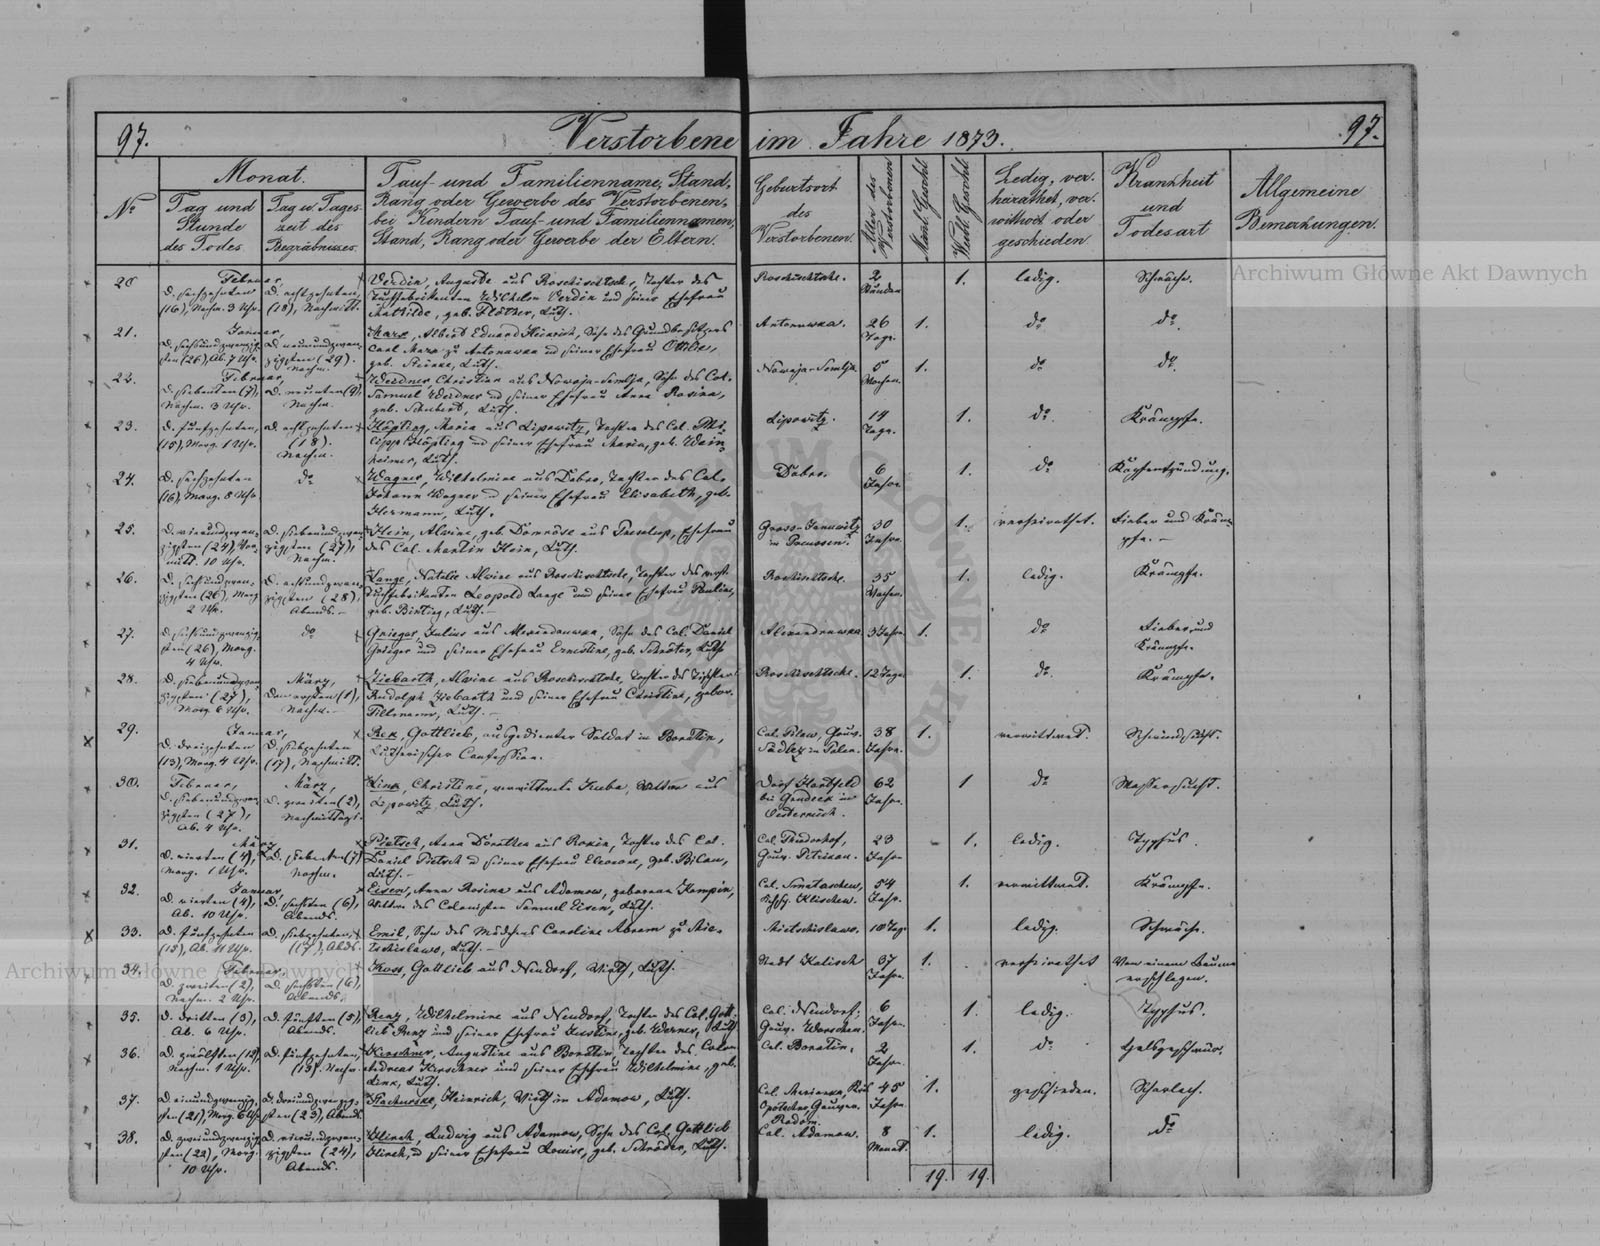 97.
Verstorbene im Jahre 1873.
97.
No
Monat.
Tag und
Stunde
des Todes.
Tag u. Tages-
zeit des
Begräbnisses.
Tauf- und Familienname, Stand,
Rang oder Gewerbe des Verstorbenen,
bei Kindern Tauf- und Familiennamen,
Stand, Rang oder Gewerbe der Eltern.
Geburtsort
des
Verstorbenen.
Alter des
Verstorbenen
Männl. Geschl.
Weibl. Geschl.
Ledig, ver-
heirathet, ver-
wittwet oder
geschieden.
Krankheit
und
Todesart
Allgemeine
Bemerkungen.
Februar,
(16), Nachm. 3 Uhr.
(18), Nachmitt.
Verdin, Auguste aus Roschischtsche, Tochter des
Tuchfabrikanten Wilhelm Verdin und seiner Ehefrau
Mathilde, geb. Luth.
Roschischtsche.
2
Stunden
1.
ledig.
Schwäche.
21.
Januar,
d. sechsundzwanzig-
sten (26), Ab. 7 Uhr.
d. neunundzwan-
zigsten (29).
Nachm.
Marx, Albert Eduard Heinrich, Sohn des Grundbesitzers
Carl Marx zu Antonuwka und seiner Ehefrau Ottilie,
geb. Luth.
Antonuwka.
26
Tage.
1.
do
do
22.
Februar,
d. siebenten (7),
Nachm. 3 Uhr.
d. neunten (9),
Nachm.
Weidner, Christian aus Nowaja-Semlja, Sohn des Col.
Samuel Weidner und seiner Ehefrau Anna Rosina,
geb. Schubert, Luth.
Nowaja-Semlja
5
Wochen.
1.
do
do
23.
d. fünfzehnten,
(15), Morg. 1 Uhr.
d. achtzehnten
(18).
Nachm.
Maria aus Lipowitz, Tochter des Col. Phi-
lipp und seiner Ehefrau Maria, geb. Wein-
heimer, Luth.
Lipowitz.
14
Tage.
1.
do
Krämpfe.
24.
d. sechzehnten
(16), Morg. 8 Uhr
do
Wagner, Wilhelmine aus Dabro, Tochter des Col.
Johann Wagner und seiner Ehefrau Elisabeth, geb.
Hermann, Luth.
Dabro.
6
Jahre
1.
do
Kopfentzündung.
25.
d. vierundzwan-
zigsten (24), Vor-
mitt. 10 Uhr.
d. siebenundzwan-
zigsten (27),
Nachm.
Hein, Alwine, geb. Domröse aus Ehefrau
des Col. Martin Hein, Luth.
in Preussen.
30
Jahre.
1.
verheirathet.
Fieber und Kräm-
pfe.
26.
d. sechsundzwan-
zigsten (26), Morg.
2 Uhr.
d. achtundzwan-
zigsten (28),
Abends.
Lange, Natalie Alwine aus Roschischtsche, Tochter des
Tuchfabrikanten Leopold Lange und seiner Ehefrau Pauline,
geb. Luth.
Roschischtsche.
35
Wochen.
1.
ledig.
Krämpfe.
27.
d. sechsundzwanzig-
sten (26), Morg.
4 Uhr.
do
Grieger, Julius aus Alexandruwka, Sohn des Col. Daniel
Grieger und seiner Ehefrau Ernestine, geb. Schröter, Luth.
Alexandruwka
3 Jahre.
1.
do
Fieber und
Krämpfe.
28.
d. siebenundzwan-
zigsten (27),
Morg. 6 Uhr.
März,
Den ersten (1),
Nachm.
Ziebarth, Alwine aus Roschischtsche, Tochter des Tischler
Rudolph Ziebarth und seiner Ehefrau Christine, gebor.
Tillmann, Luth.
Roschischtsche.
12 Tage
1.
do
Krämpfe.
29.
Januar,
d. dreizehnten
(13), Morg. 4 Uhr.
d. siebzehnten
(17), Nachmitt.
Rex, Gottlieb, ausgedienter Soldat in Boratin,
Lutherischer Confession.
38
Jahre.
1.
verwittwet.
Schwindsucht.
30.
Februar,
d. siebenundzwan-
zigsten (27),
Ab. 4 Uhr.
März,
d. zweiten (2),
Nachmittags.
Link, Christine, verwittwete Wittwe aus
Lipowitz, Luth.
Dorf Hartfeld
bei Grodeck in
Oesterreich.
62
Jahre.
1
do
Wassersucht.
31.
März
d. vierten (4),
Morg. 1 Uhr.
d. siebenten (7)
Nachm.
Pietsch, Anna Dorothea aus Tochter des Col.
Daniel Pietsch und seiner Ehefrau Eleonore, geb.
Luth.
Gouv. Petrikau.
23
Jahre
1.
ledig.
Typhus.
32.
Januar,
d. vierten (4),
Ab. 10 Uhr.
d. sechsten (6),
Abends.
Eisen, Anna Rosina aus Adamow, geborene Kempin,
Wittwe des Colonisten Samuel Eisen, Luth.
54
Jahr.
1.
verwittwet.
Krämpfe.
33.
d. fünfzehnten
(15), Ab. 11 Uhr.
d. siebzehnten,
(17), Abds.
Emil, Sohn des Mädchens Caroline Abram zu Mie-
tschislawo, Luth.
Mietschislawo.
10 Tage
1.
ledig.
Schwäche.
34.
Februar,
d. zweiten (2),
Nachm. 2 Uhr.
d. sechsten (6),
Abends.
Koss, Gottlieb aus Neudorf, Wirth, Luth.
Stadt Kalisch
37
Jahre.
1.
verheirathet
Von einem Baume
erschlagen.
35.
d. dritten (3),
Ab. 6 Uhr.
d. fünften (5),
Abends.
Renz, Wilhelmine aus Neudorf, Tochter des Col. Gott-
lieb Renz und seiner Ehefrau Justine, geb. Werner, Luth
Col. Neudorf,
Gouv. Warschau.
6
Jahre.
1.
ledig.
Typhus.
36.
d. zwölften (12),
Nachm. 1 Uhr.
d. fünfzehnten,
(15), Nachm.
Kirschner, Augustine aus Boratin, Tochter des Colon.
Andreas Kirschner und seiner Ehefrau Wilhelmine, geb.
Link, Luth.
Col. Boratin,
2
Jahre.
1.
do
Halsgeschwür.
37.
d. einundzwanzig-
sten (21), Morg. 6 Uhr
d. dreiundzwanzig-
sten (23), Abends.
Heinrich, Wirth in Adamow, Luth.
Radom.
45
Jahre.
1.
geschieden.
Scharlach.
38.
d. zweiundzwanzig-
sten (22), Morg.
10 Uhr.
d. vierundzwan-
zigsten (24),
Abends.
Hirsch, Ludwig aus Adamow, Sohn des Col. Gottlieb
Hirsch, und seiner Ehefrau Louise, geb. Schröder, Luth.
Col. Adamow.
8
Monat.
1.
ledig.
do
19. 19.
Archiwum Główne Akt Dawnych
Archiwum Główne Akt Dawnych